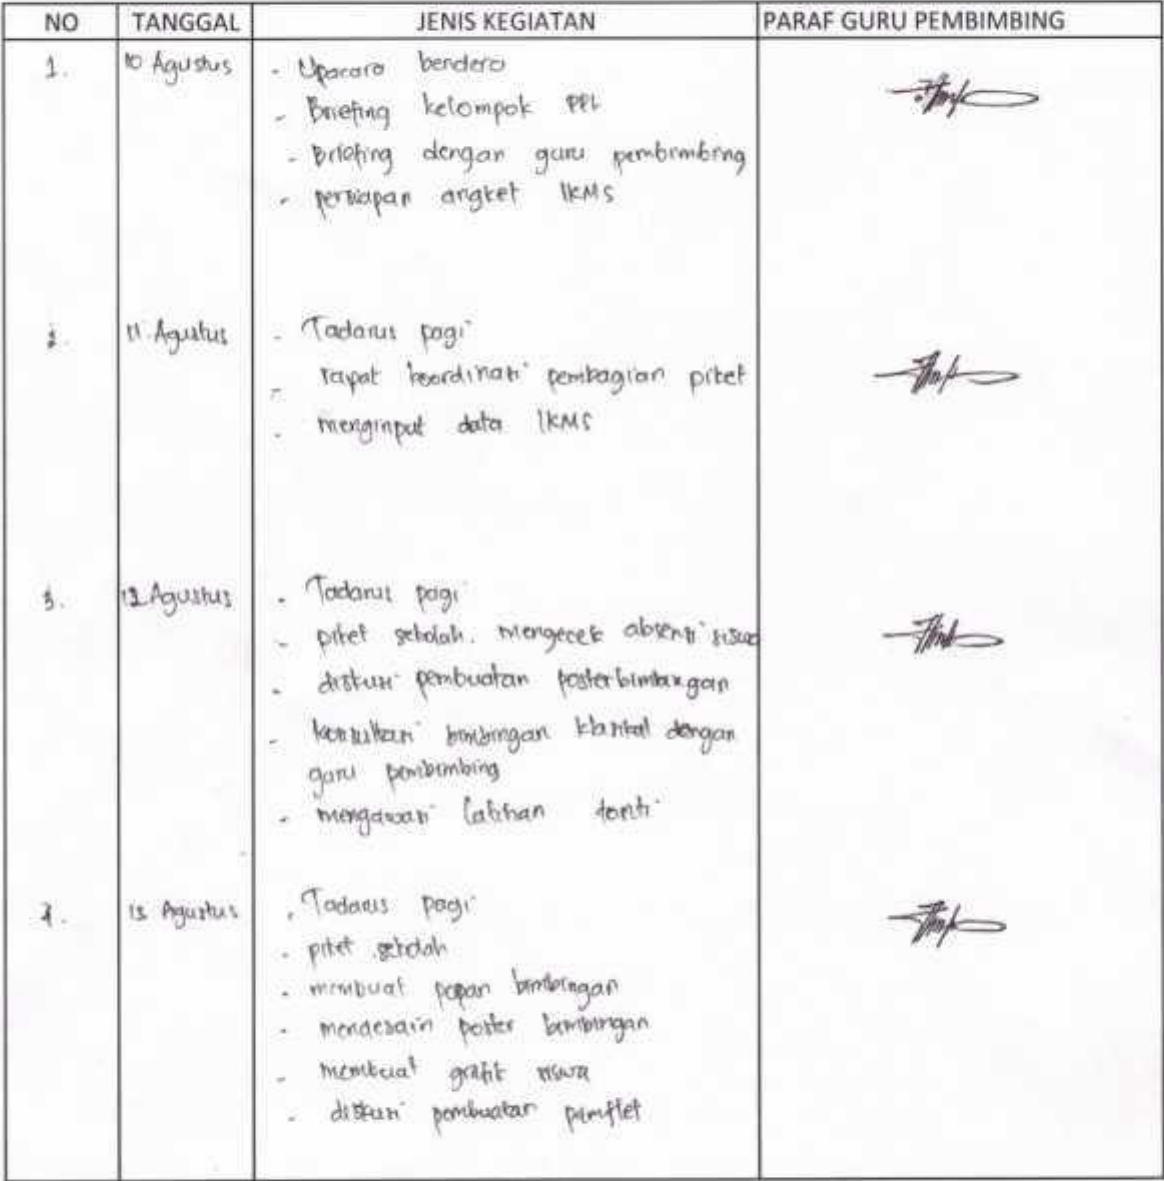 NO TANGGAL JENIS KEGIATAN PARAF GURU PEMBIMBING
1. 10 Agustus - Upacara bendera
- Briefing kelompok PPL
- Briefing dengan guru pembimbing
- persiapan angket IKMS
2. 11 Agustus - Tadarus pagi
- rapat koordinasi pembagian piket
- menginput data IKMS
3. 12 Agustus - Tadarus pagi
- piket sekolah. mengecek absensi siswa
- diskusi pembuatan poster bimbingan
- konsultasi bimbingan klasikal dengan
guru pembimbing
- mengawasi latihan tonti
4. 13 Agustus - Tadarus pagi
- piket sekolah
- membuat papan bimbingan
- mendesain poster bimbingan
- membuat grafik siswa
- diskusi pembuatan pamflet